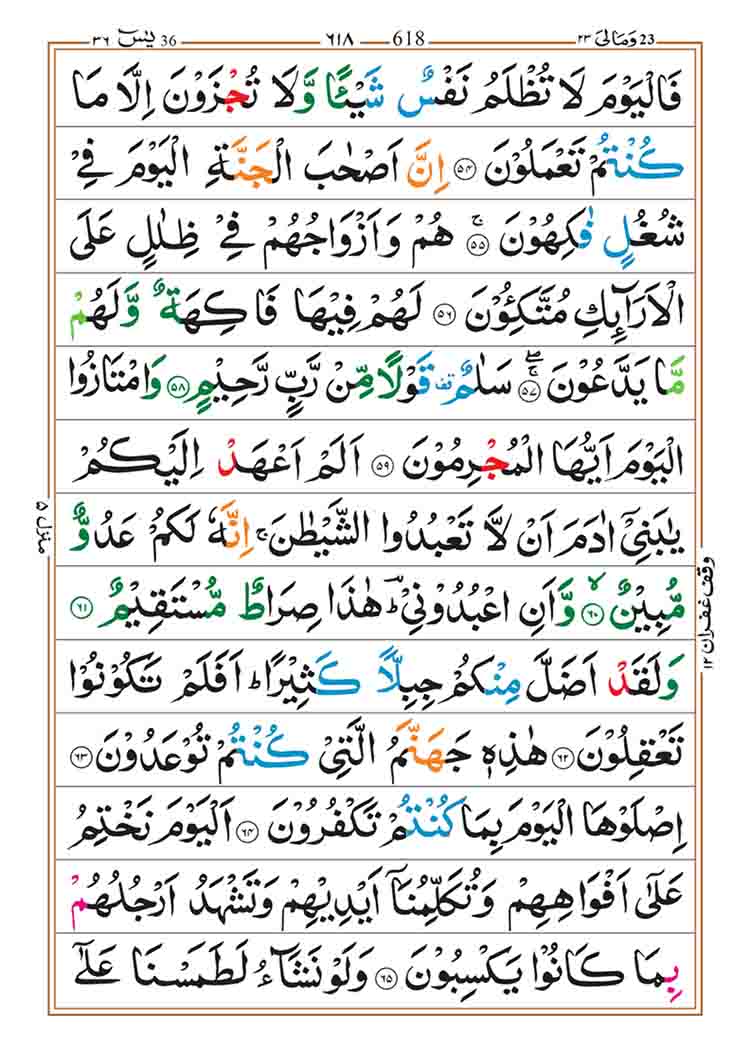 36 يٰسٓ ٣٦ 618 ٦١٨ 23 وَمَالِیَ ٢٣
فَالْیَوْمَ لَا تُظْلَمُ نَفْسٌ شَیْـًٔا وَّلَا تُجْزَوْنَ اِلَّا مَا
كُنْتُمْ تَعْمَلُوْنَ ۝۵۴ اِنَّ اَصْحٰبَ الْجَنَّةِ الْیَوْمَ فِیْ
شُغُلٍ فٰكِهُوْنَ ۝ۚ۵۵ هُمْ وَاَزْوَاجُهُمْ فِیْ ظِلٰلٍ عَلَی
الْاَرَآىِٕكِ مُتَّكِـُٔوْنَ ۝۵۶ لَهُمْ فِیْهَا فَاكِهَةٌ وَّلَهُمْ
مَّا یَدَّعُوْنَ ۝ۚۖ۵۷ سَلٰمٌ ۫ قَوْلًا مِّنْ رَّبٍّ رَّحِیْمٍ ۝۵۸ وَامْتَازُوا
الْیَوْمَ اَیُّهَا الْمُجْرِمُوْنَ ۝۵۹ اَلَمْ اَعْهَدْ اِلَیْكُمْ
یٰبَنِیْۤ اٰدَمَ اَنْ لَّا تَعْبُدُوا الشَّیْطٰنَ ۚ اِنَّهٗ لَكُمْ عَدُوٌّ
مُّبِیْنٌ ۝ۙ۶۰ وَّاَنِ اعْبُدُوْنِیْ ؔؕ هٰذَا صِرَاطٌ مُّسْتَقِیْمٌ ۝۶۱
وَلَقَدْ اَضَلَّ مِنْكُمْ جِبِلًّا كَثِیْرًا ؕ اَفَلَمْ تَكُوْنُوْا
تَعْقِلُوْنَ ۝۶۲ هٰذِهٖ جَهَنَّمُ الَّتِیْ كُنْتُمْ تُوْعَدُوْنَ ۝۶۳
اِصْلَوْهَا الْیَوْمَ بِمَا كُنْتُمْ تَكْفُرُوْنَ ۝۶۴ اَلْیَوْمَ نَخْتِمُ
عَلٰۤی اَفْوَاهِهِمْ وَتُكَلِّمُنَاۤ اَیْدِیْهِمْ وَتَشْهَدُ اَرْجُلُهُمْ
بِمَا كَانُوْا یَكْسِبُوْنَ ۝۶۵ وَلَوْ نَشَآءُ لَطَمَسْنَا عَلٰۤی
منزل ۵
وقف غفران ١٢